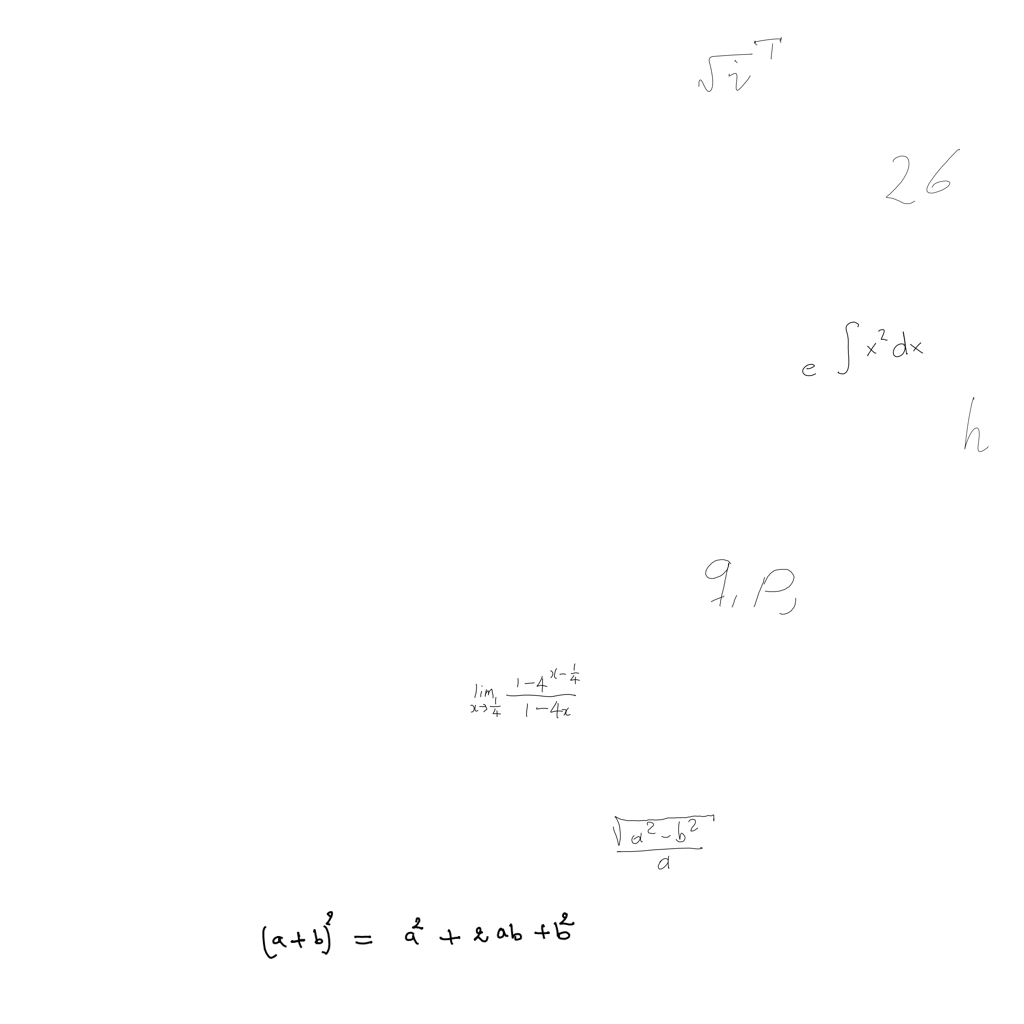 √i^T
26
e ∫x²dx
h
q, p,
lim_{x→1/4} (1-4^{x-1/4})/(1-4x)
√(a²-b²)/a
(a+b)² = a² + 2ab + b²